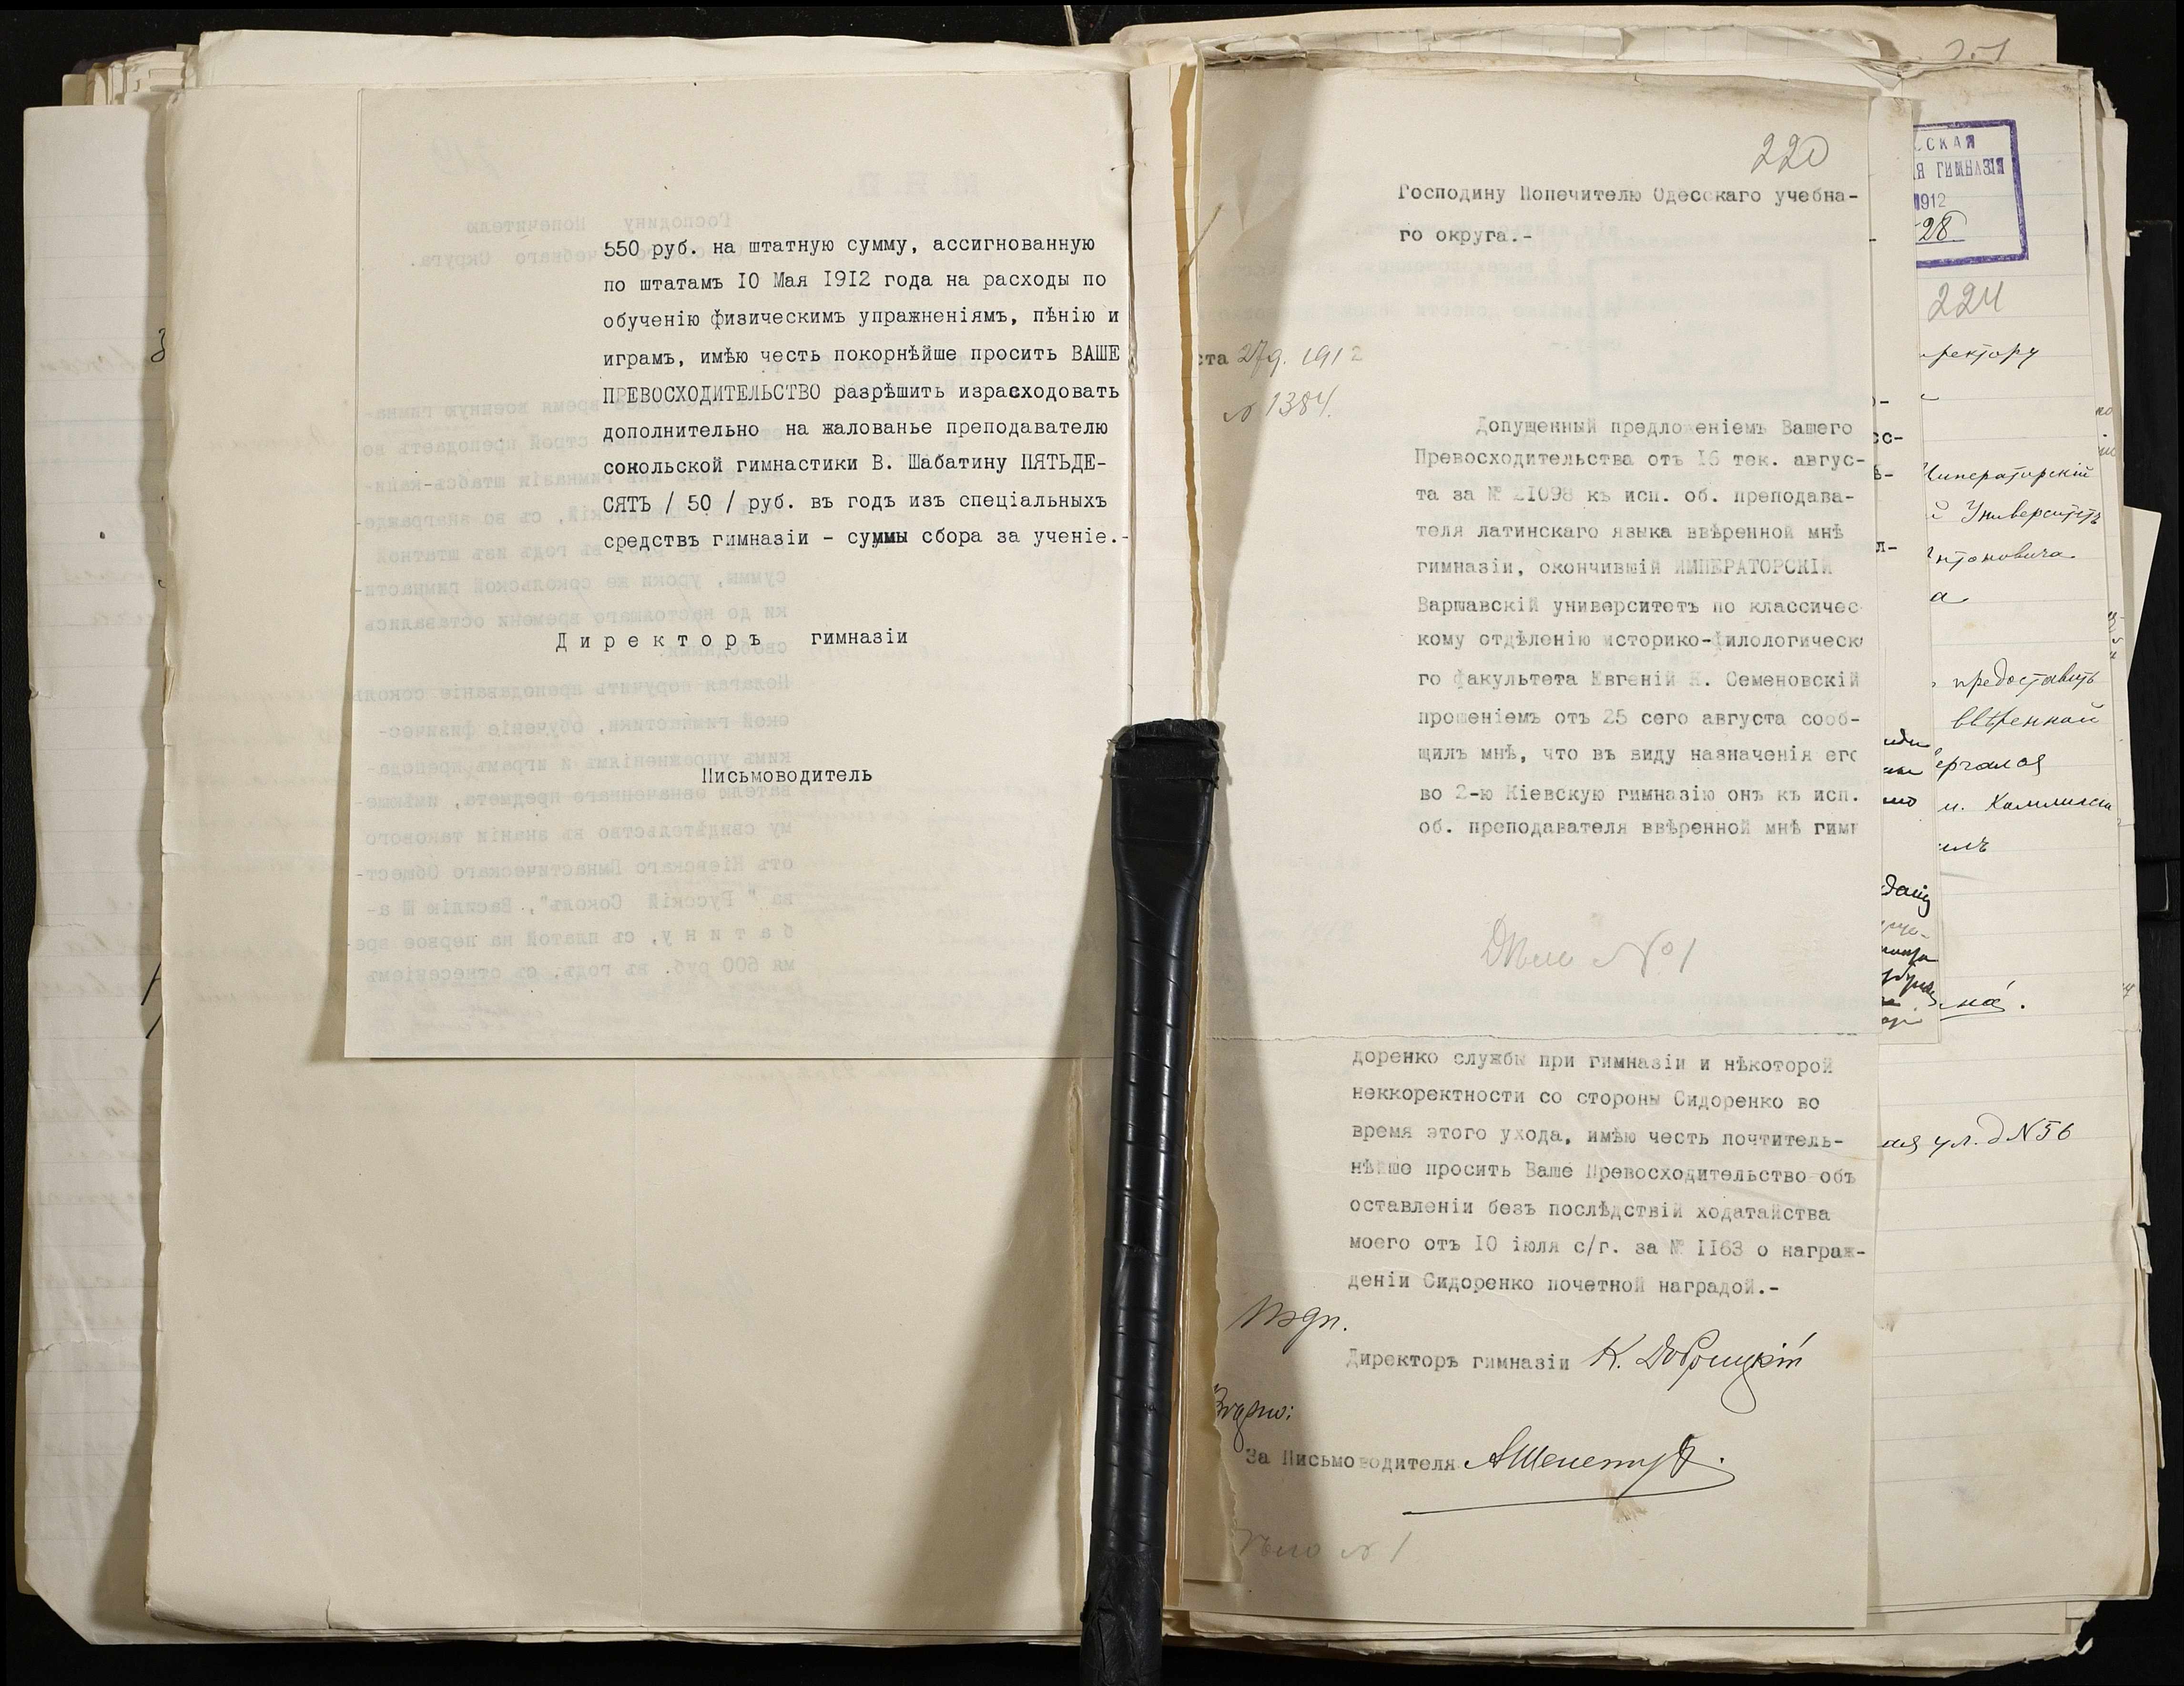 550 руб. на штатную сумму, ассигнованную
по штатамъ 10 Мая 1912 года на расходы по
обученію физическимъ упражненіямъ, пѣнію и
играмъ, имѣю честь покорнѣйше просить ВАШЕ
ПРЕВОСХОДИТЕЛЬСТВО разрѣшить израсходовать
дополнительно на жалованье преподавателю
сокольской гимнастики В. Шабатину ПЯТЬДЕ-
СЯТЪ / 50 / руб. въ годъ изъ спеціальныхъ
средствъ гимназіи - суммы сбора за ученіе.-
Директоръ гимназіи
Письмоводитель
220
Господину Попечителю Одесскаго учебна-
го округа.-
ста 27 д. 1912
№ 1384.
Допущенный предложеніемъ Вашего
Превосходительства отъ 16 тек. авгус-
та за № 21098 къ исп. об. преподава-
теля латинскаго языка ввѣренной мнѣ
гимназіи, окончившій ИМПЕРАТОРСКІЙ
Варшавскій университетъ по классичес
кому отдѣленію историко-филологическ
го факультета Евгеній Н. Семеновскій
прошеніемъ отъ 25 сего августа сооб-
щилъ мнѣ, что въ виду назначенія его
во 2-ю Кіевскую гимназію онъ къ исп.
об. преподавателя ввѣренной мнѣ гимн
Дѣло №1
доренко службы при гимназіи и нѣкоторой
неккоректности со стороны Сидоренко во
время этого ухода, имѣю честь почтитель-
нѣйше просить Ваше Превосходительство объ
оставленіи безъ послѣдствій ходатайства
моего отъ 10 іюля с/г. за № 1163 о награж-
деніи Сидоренко почетной наградой.-
Директоръ гимназіи
За Письмоводителя
Дѣло № 1
СКАЯ
Я ГИМНАЗІЯ
1912
28
224
ректору
Императорскій
й Университетъ
нтоновича
а
предоставить
ввѣренной
ая ул. д № 56